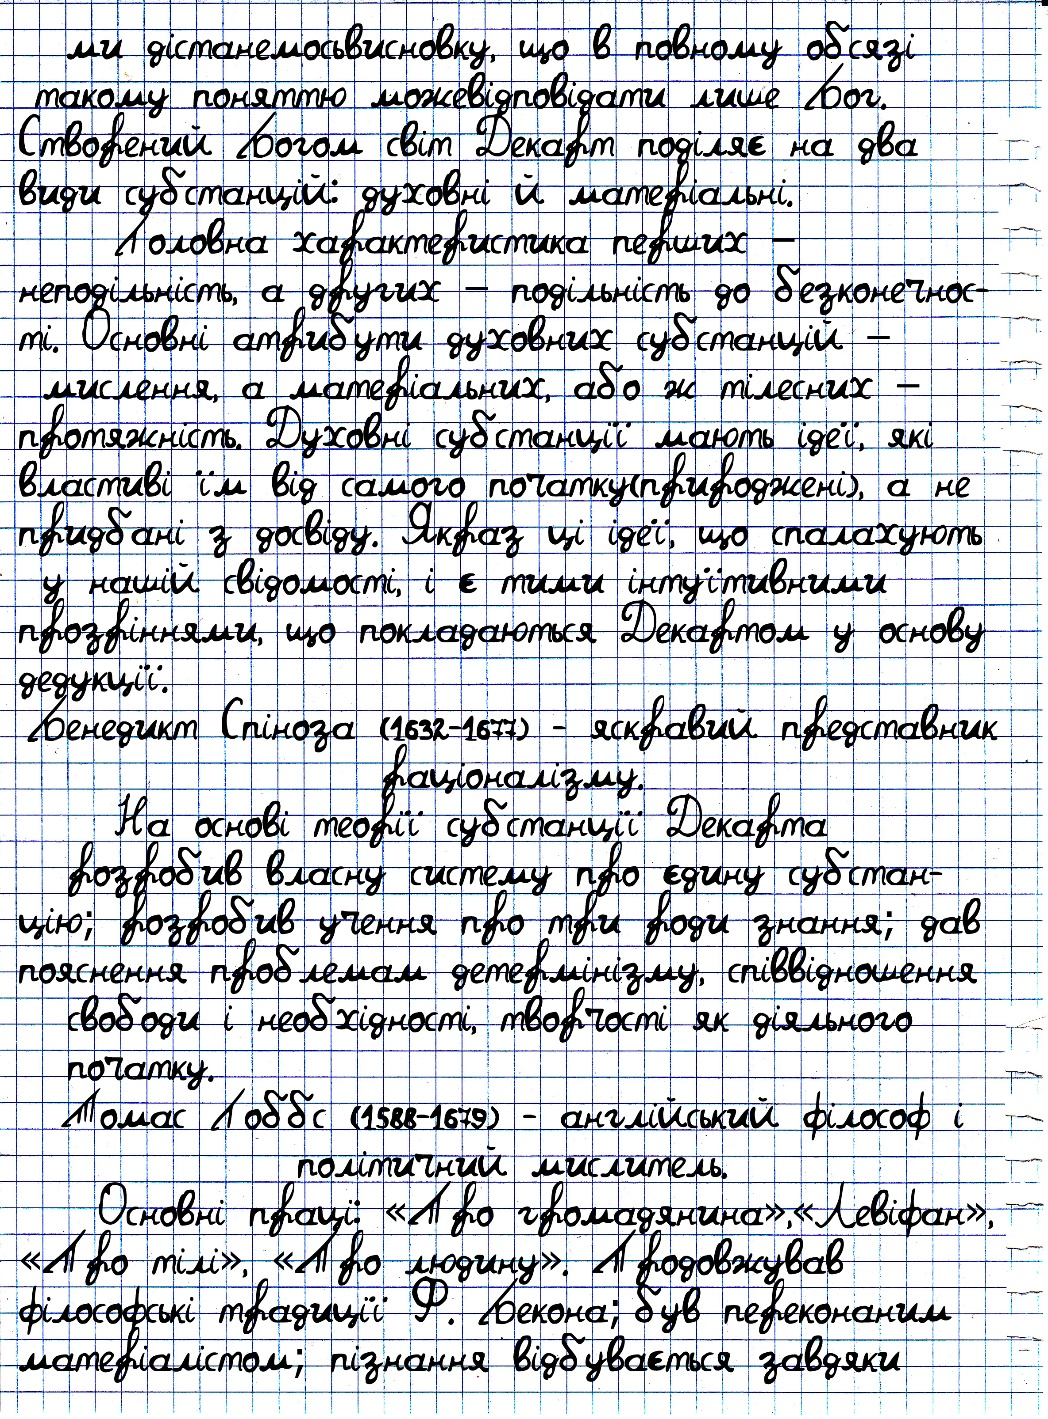 ми дістанемосьвисновку, що в повному обсязі
такому поняттю можевідповідати лише Бог.
Створений Богом світ Декарт поділяє на два
види субстанцій: духовні й матеріальні.
Головна характеристика перших –
неподільність, а других – подільність до безконечнос-
ті. Основні атрибути духовних субстанцій –
мислення, а матеріальних, або ж тілесних –
протяжність. Духовні субстанції мають ідеї, які
властиві їм від самого початку(природжені), а не
придбані з досвіду. Якраз ці ідеї, що спалахують
у нашій свідомості, і є тими інтуїтивними
прозріннями, що покладаються Декартом у основу
дедукції.
Бенедикт Спіноза (1632-1677) - яскравий представник
раціоналізму.
На основі теорії субстанції Декарта
розробив власну систему про єдину субстан-
цію; розробив учення про три роди знання; дав
пояснення проблемам детермінізму, співвідношення
свободи і необхідності, творчості як діяльного
початку.
Томас Гоббс (1588-1679) - англійський філософ і
політичний мислитель.
Основні праці: «Про громадянина»,«Левіфан»,
«Про тілі», «Про людину». Продовжував
філософські традиції Ф. Бекона; був переконаним
матеріалістом; пізнання відбувається завдяки